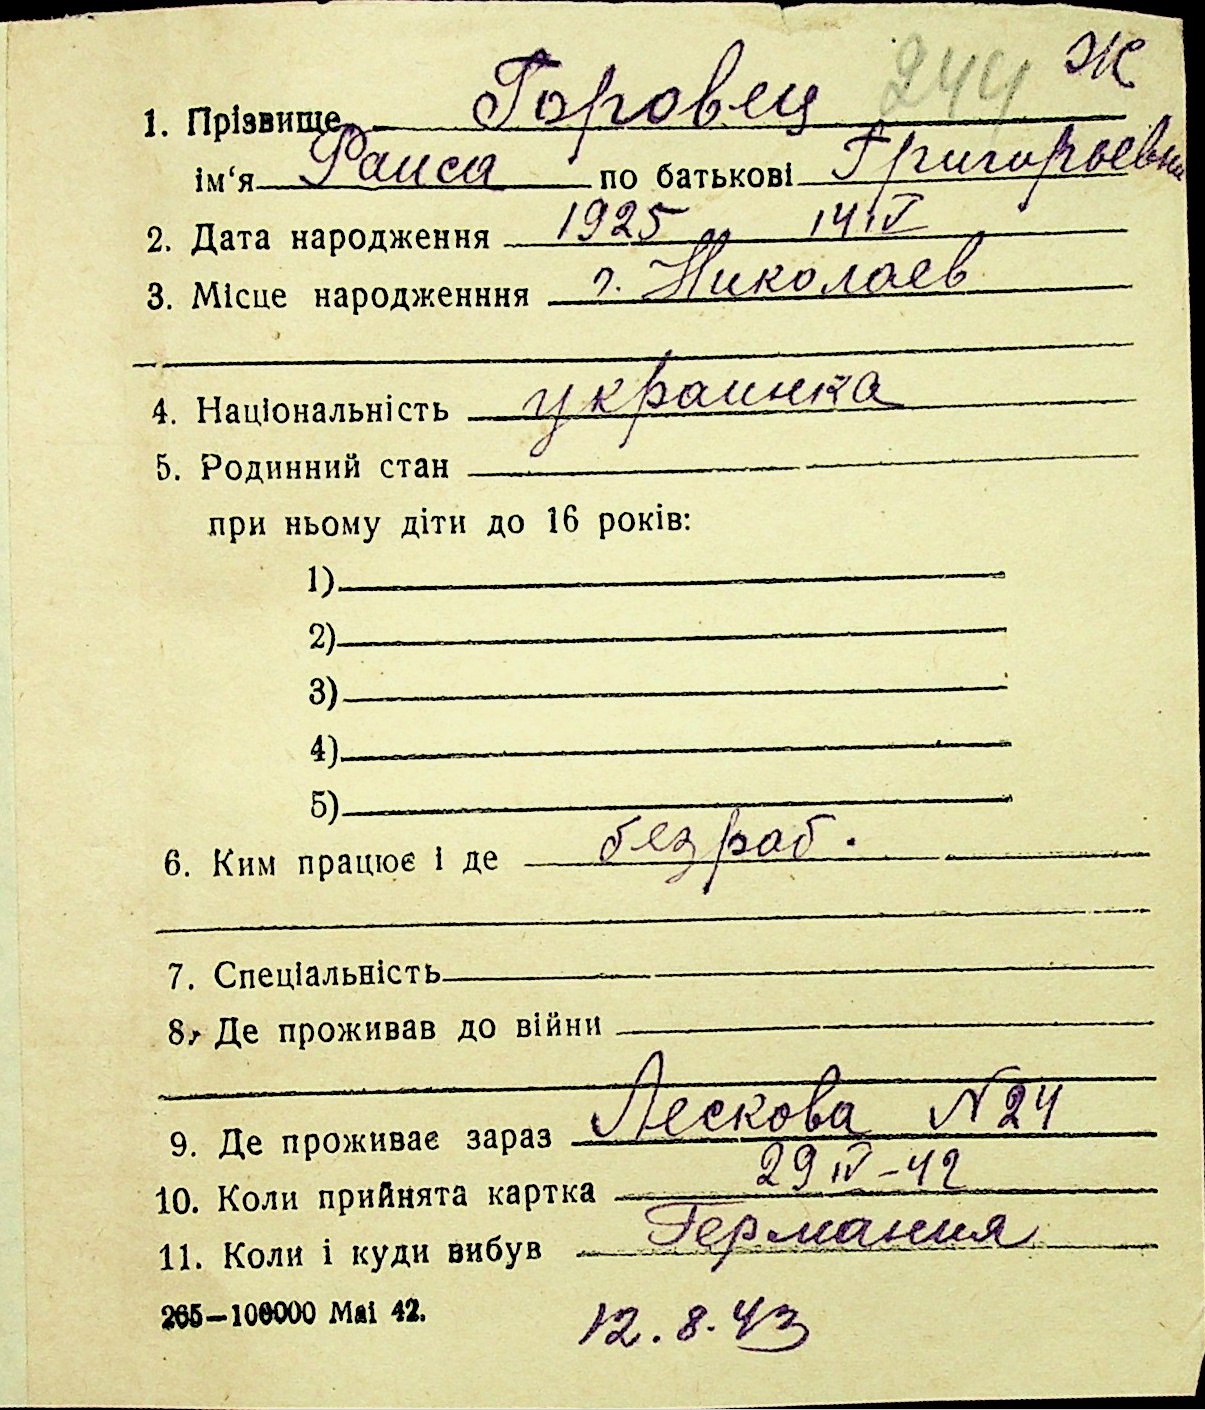 244 Ж
1. Прізвище Горовец
ім‘я Раиса по батькові Григорьевна
2. Дата народження 1925 14 IV
3. Місце народженння г. Николаев
4. Національність украинка
5. Родинний стан
при ньому діти до 16 років:
1)
2)
3)
4)
5)
6. Ким працює і де безраб.
7. Спеціальність
8. Де проживав до війни
9. Де проживає зараз Лескова N 24
10. Коли прийнята картка 29 IV - 42
11. Коли і куди вибув Германия
265—100000 Маі 42. 12. 8. 43